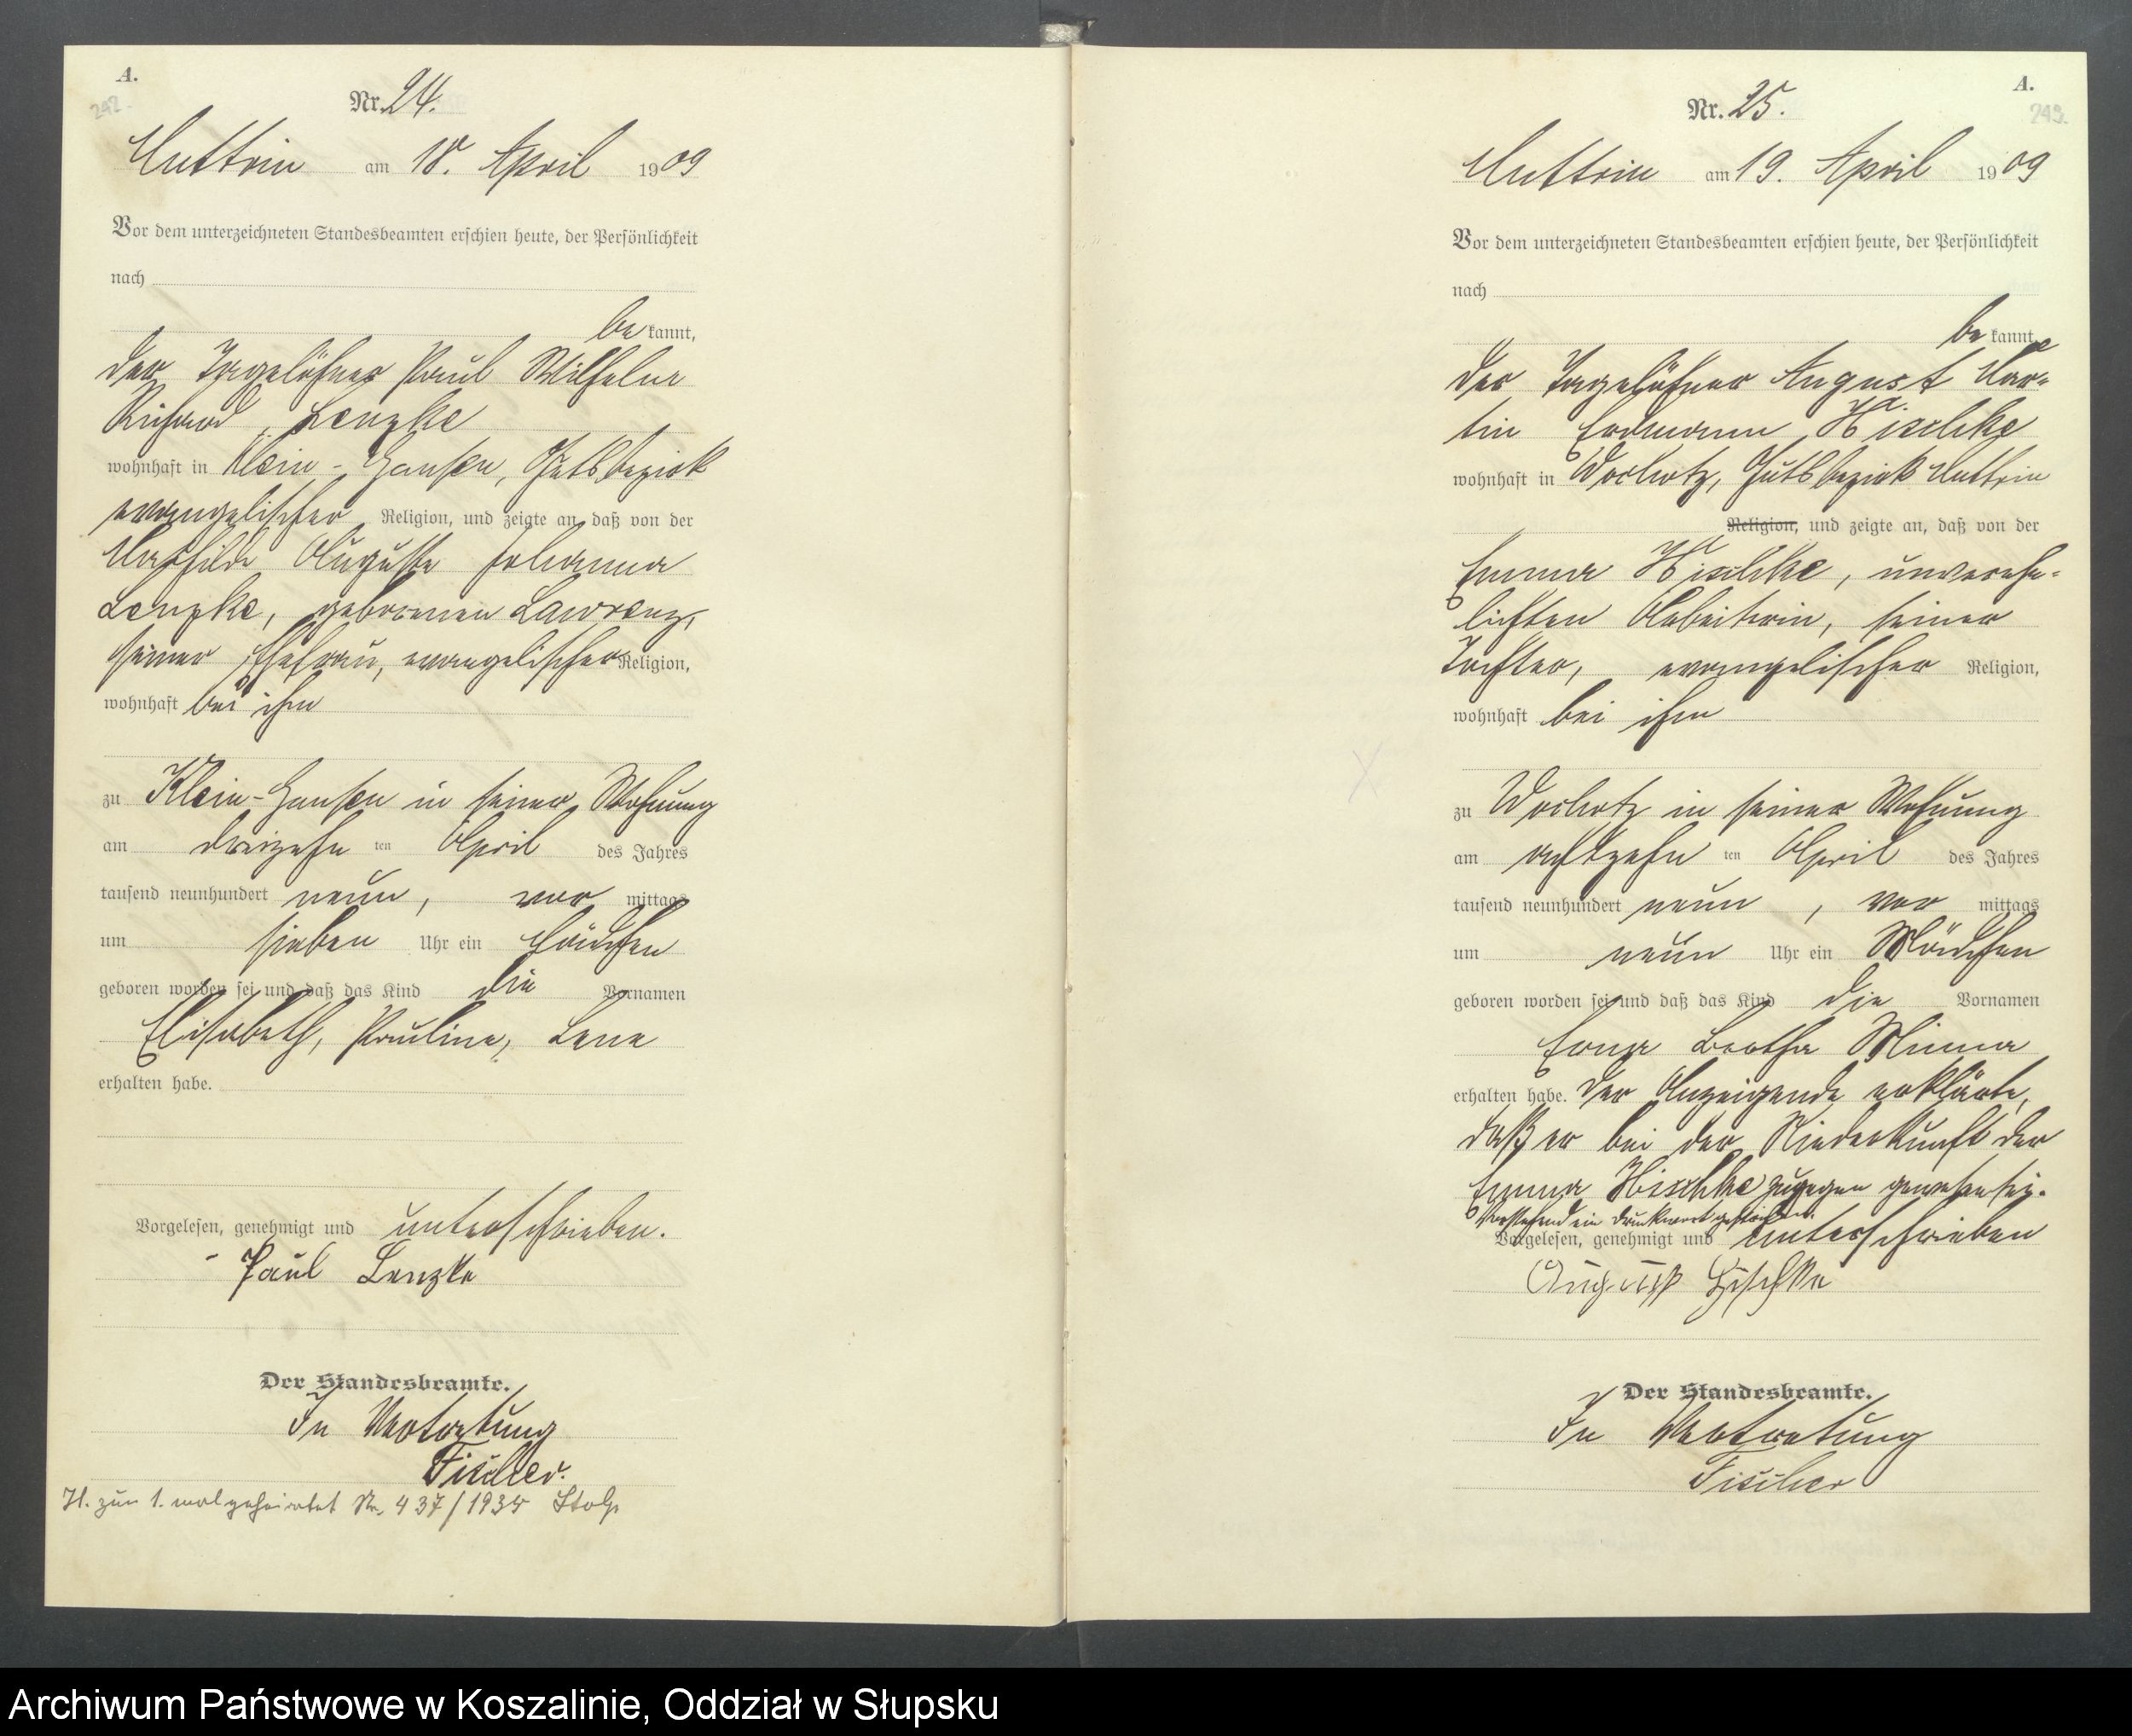 A.
242.
Nr. 24.
Muttrin am 18. April 1909
Vor dem unterzeichneten Standesbeamten erschien heute, der Persönlichkeit
nach
be kannt,
der Tagelöhner Paul Wilhelm
Richard Lenzke
wohnhaft in Klein-Gansen, Gutsbezirk
evangelischer Religion, und zeigte an, daß von der
Mathilde Auguste Johanna
Lenzke, geborenen Lawrenz,
seiner Ehefrau, evangelischer Religion,
wohnhaft bei ihm
zu Klein-Gansen in seiner Wohnung
am dreizehn ten April des Jahres
tausend neunhundert neun, vor mittags
um sieben Uhr ein Mädchen
geboren worden sei und daß das Kind die Vornamen
Elisabeth, Pauline, Lene
erhalten habe.
Vorgelesen, genehmigt und unterschrieben.
Paul Lenzke
Der Standesbeamte.
In Vertretung
Fischer.
H. zum 1. mal geheiratet Nr. 437/1935 Stolp
A.
243.
Nr. 25.
Muttrin am 19. April 1909
Vor dem unterzeichneten Standesbeamten erschien heute, der Persönlichkeit
nach
be kannt,
der Tagelöhner August Mar-
tin Erdmann Hischke
wohnhaft in Wochotz, Gutsbezirk Muttrin
Religion, und zeigte an, daß von der
Emma Hischke, unverehe-
lichten Arbeiterin, seiner
Tochter, evangelischer Religion,
wohnhaft bei ihm
zu Wochotz in seiner Wohnung
am achtzehn ten April des Jahres
tausend neunhundert neun, vor mittags
um neun Uhr ein Mädchen
geboren worden sei und daß das Kind die Vornamen
Erna Bertha Minna
erhalten habe. Der Anzeigende erklärte,
daß er bei der Niederkunft der
Emma Hischke zugegen gewesen sei.
Vorstehend ein Druckwort gestrichen.
Vorgelesen, genehmigt und unterschrieben
August Hischke
Der Standesbeamte.
In Vertretung
Fischer
Archiwum Państwowe w Koszalinie, Oddział w Słupsku